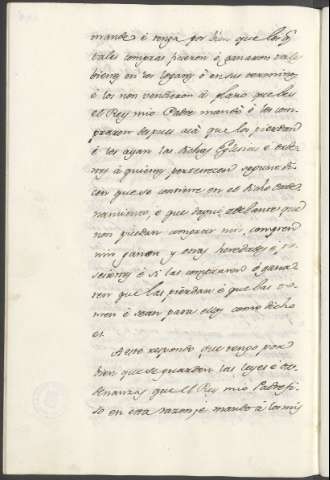 mande é tenga por bien que los q.
tales compras ficieron ó ganaron tale
bienes en los logares ó en sus termino
é los non vendieron á plazo que les
el Rey mio Padre mandó ó los com
praron despues acá que los pierdan
é los ayan las dichas Iglesias é orde
nes á quienes pertenecen segund di
cen que se contiene en el dicho orde
namiento, é que daqui adelante que
non puedan comprar nin compren
nin ganen y otras heredades é po
sesiones é si las compraren ó gana
ren que las pierdan é que las to
men é sean para ellos como dicho
es.
A esto respondo que tengo por
bien que se guarden las leyes é or
denanzas que el Rey mio Padre fi
so en esta razon, e mando á los mis